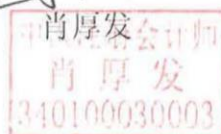 肖厚发
中国注册会计师
肖厚发
340100030003